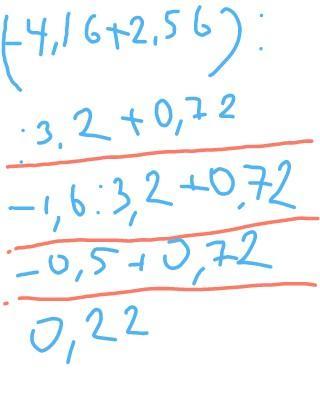 (-4,16+2,56):
:3,2+0,72
-1,6:3,2+0,72
-0,5+0,72
0,22